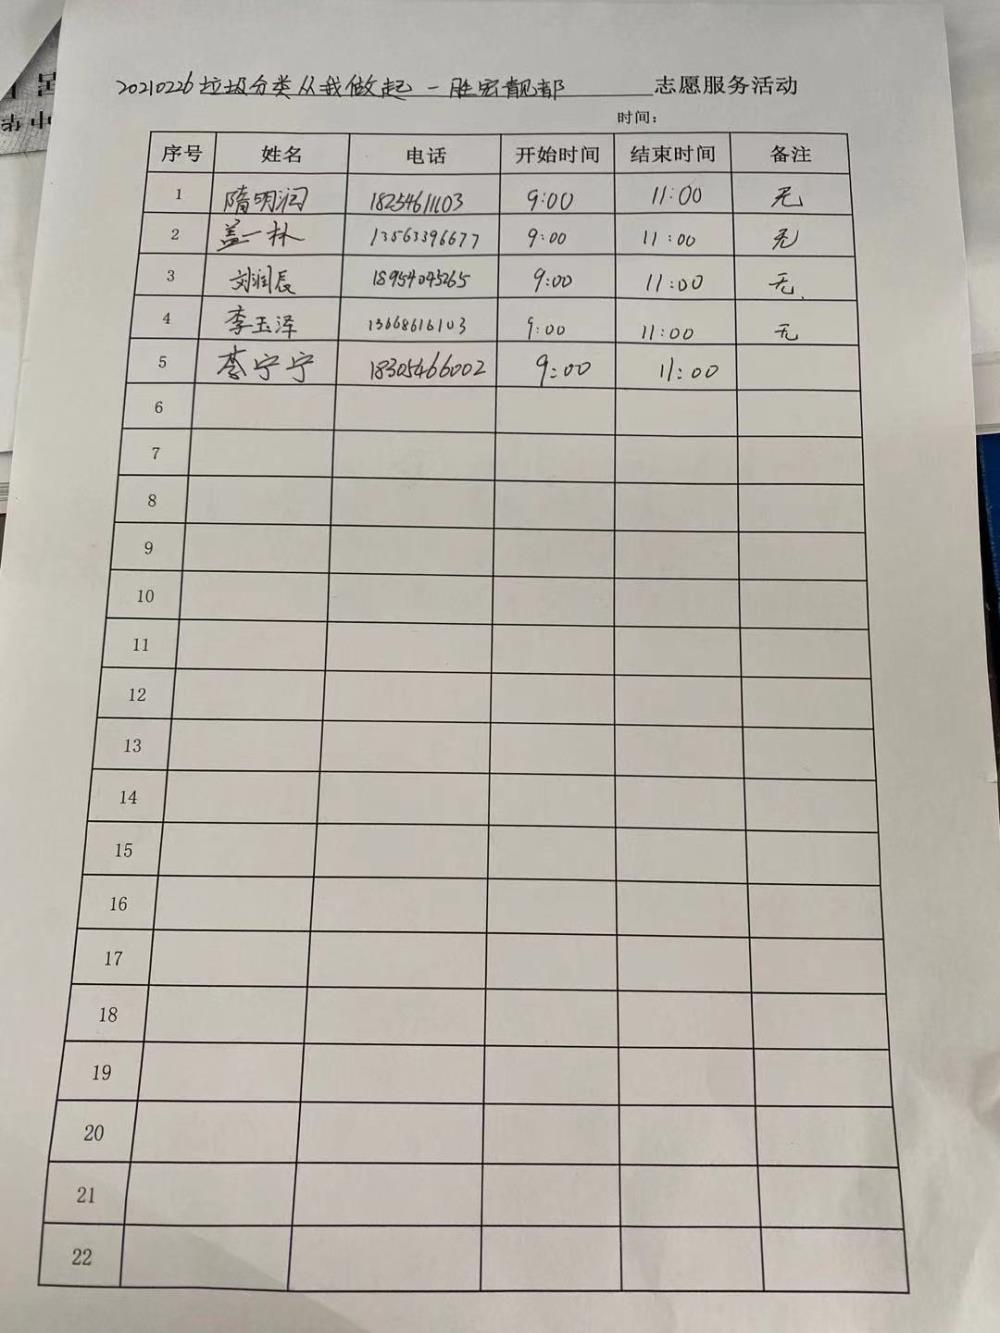 20210226垃圾分类从我做起－胜宏靓都 志愿服务活动
时间：
序号 姓名 电话 开始时间 结束时间 备注
1 隋明润 18254611103 9:00 11:00 无
2 盖一林 13563396677 9:00 11:00 无
3 刘润辰 18954045265 9:00 11:00 无
4 李玉泽 13668616103 9:00 11:00 无
5 李宁宁 18305466002 9:00 11:00
6
7
8
9
10
11
12
13
14
15
16
17
18
19
20
21
22